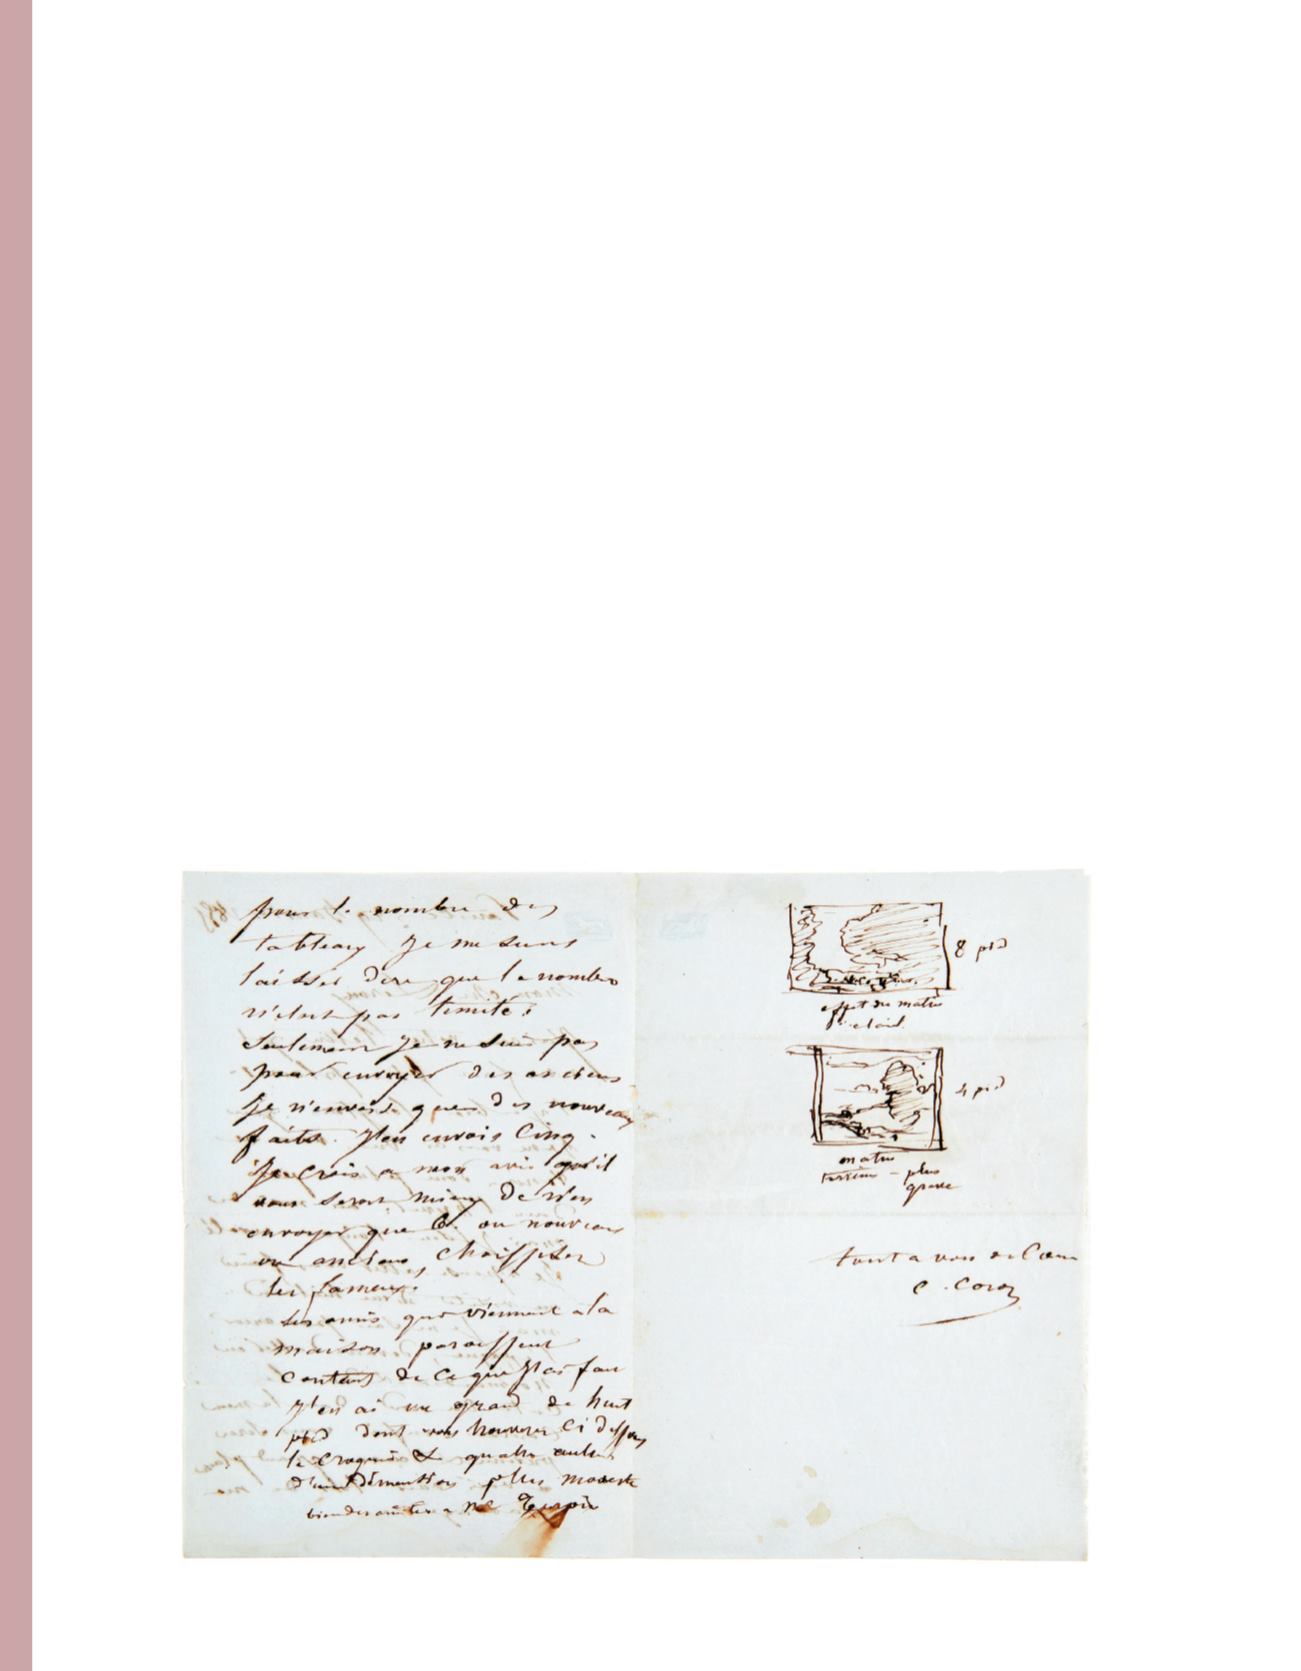 pour le nombre des
tableaux je me suis
laissé dire que le nombre
n'était pas limité;
seulement je ne suis pas
pour envoyer des anciens
je n'envoie que des nouveaux
faits. j'en envois cinq.
je crois a mon avis qu'il
vous serait mieux de n'en
envoyer que 6. ou nouveaux
ou anciens, choississez
les fameux.
les amis qui viennent a la
maison paraissent
contents de ce que j'ai fait
j'en ai un grand de huit
pied dont vous trouverez ci dessous
le croquis & quatre autres
d'une dimention plus modeste
bien des amities a Me Turpin
8 pied
effet du matin
4 pied
matin
plus
grave
tout a vous de Coeur
C. Corot
1855